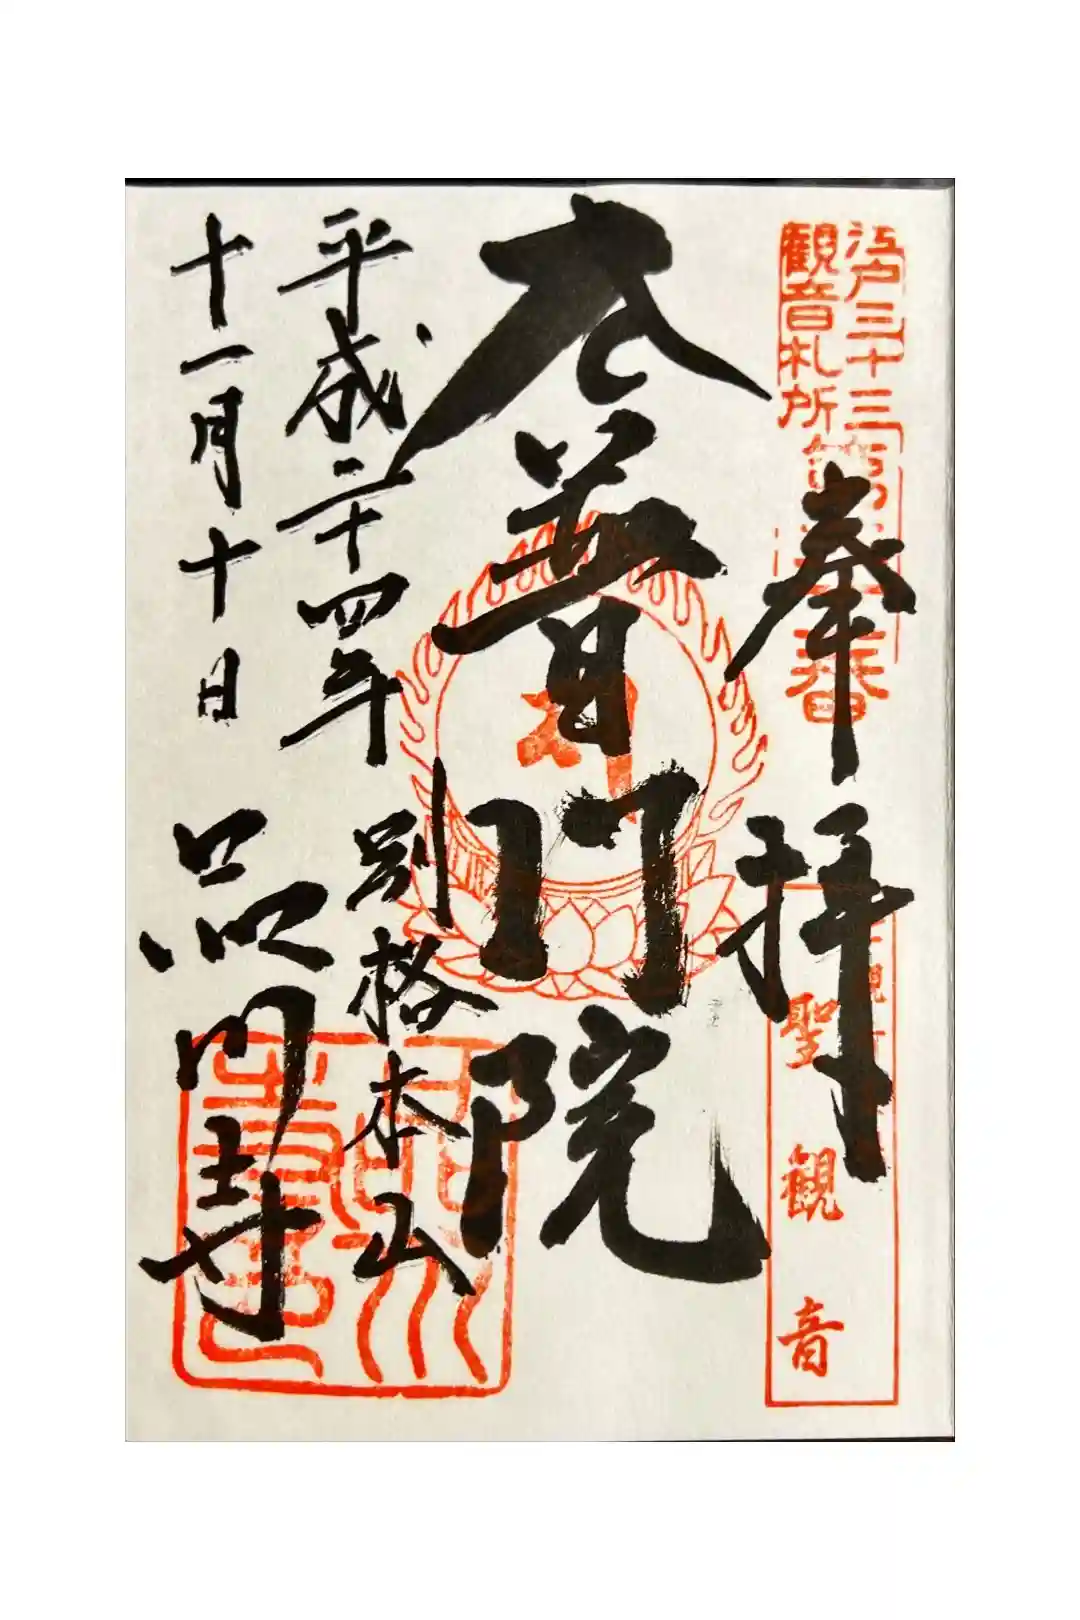 江戸三十三
観音札所
番
奉拝
聖観音
普門院
平成二十四年
十一月十日
別格本山
品川寺